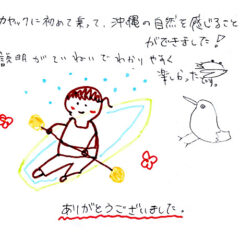 カヤックに初めて乗って、沖縄の自然を感じること
ができました!
説明がていねいでわかりやすく
楽しかったです。
ありがとうございました。